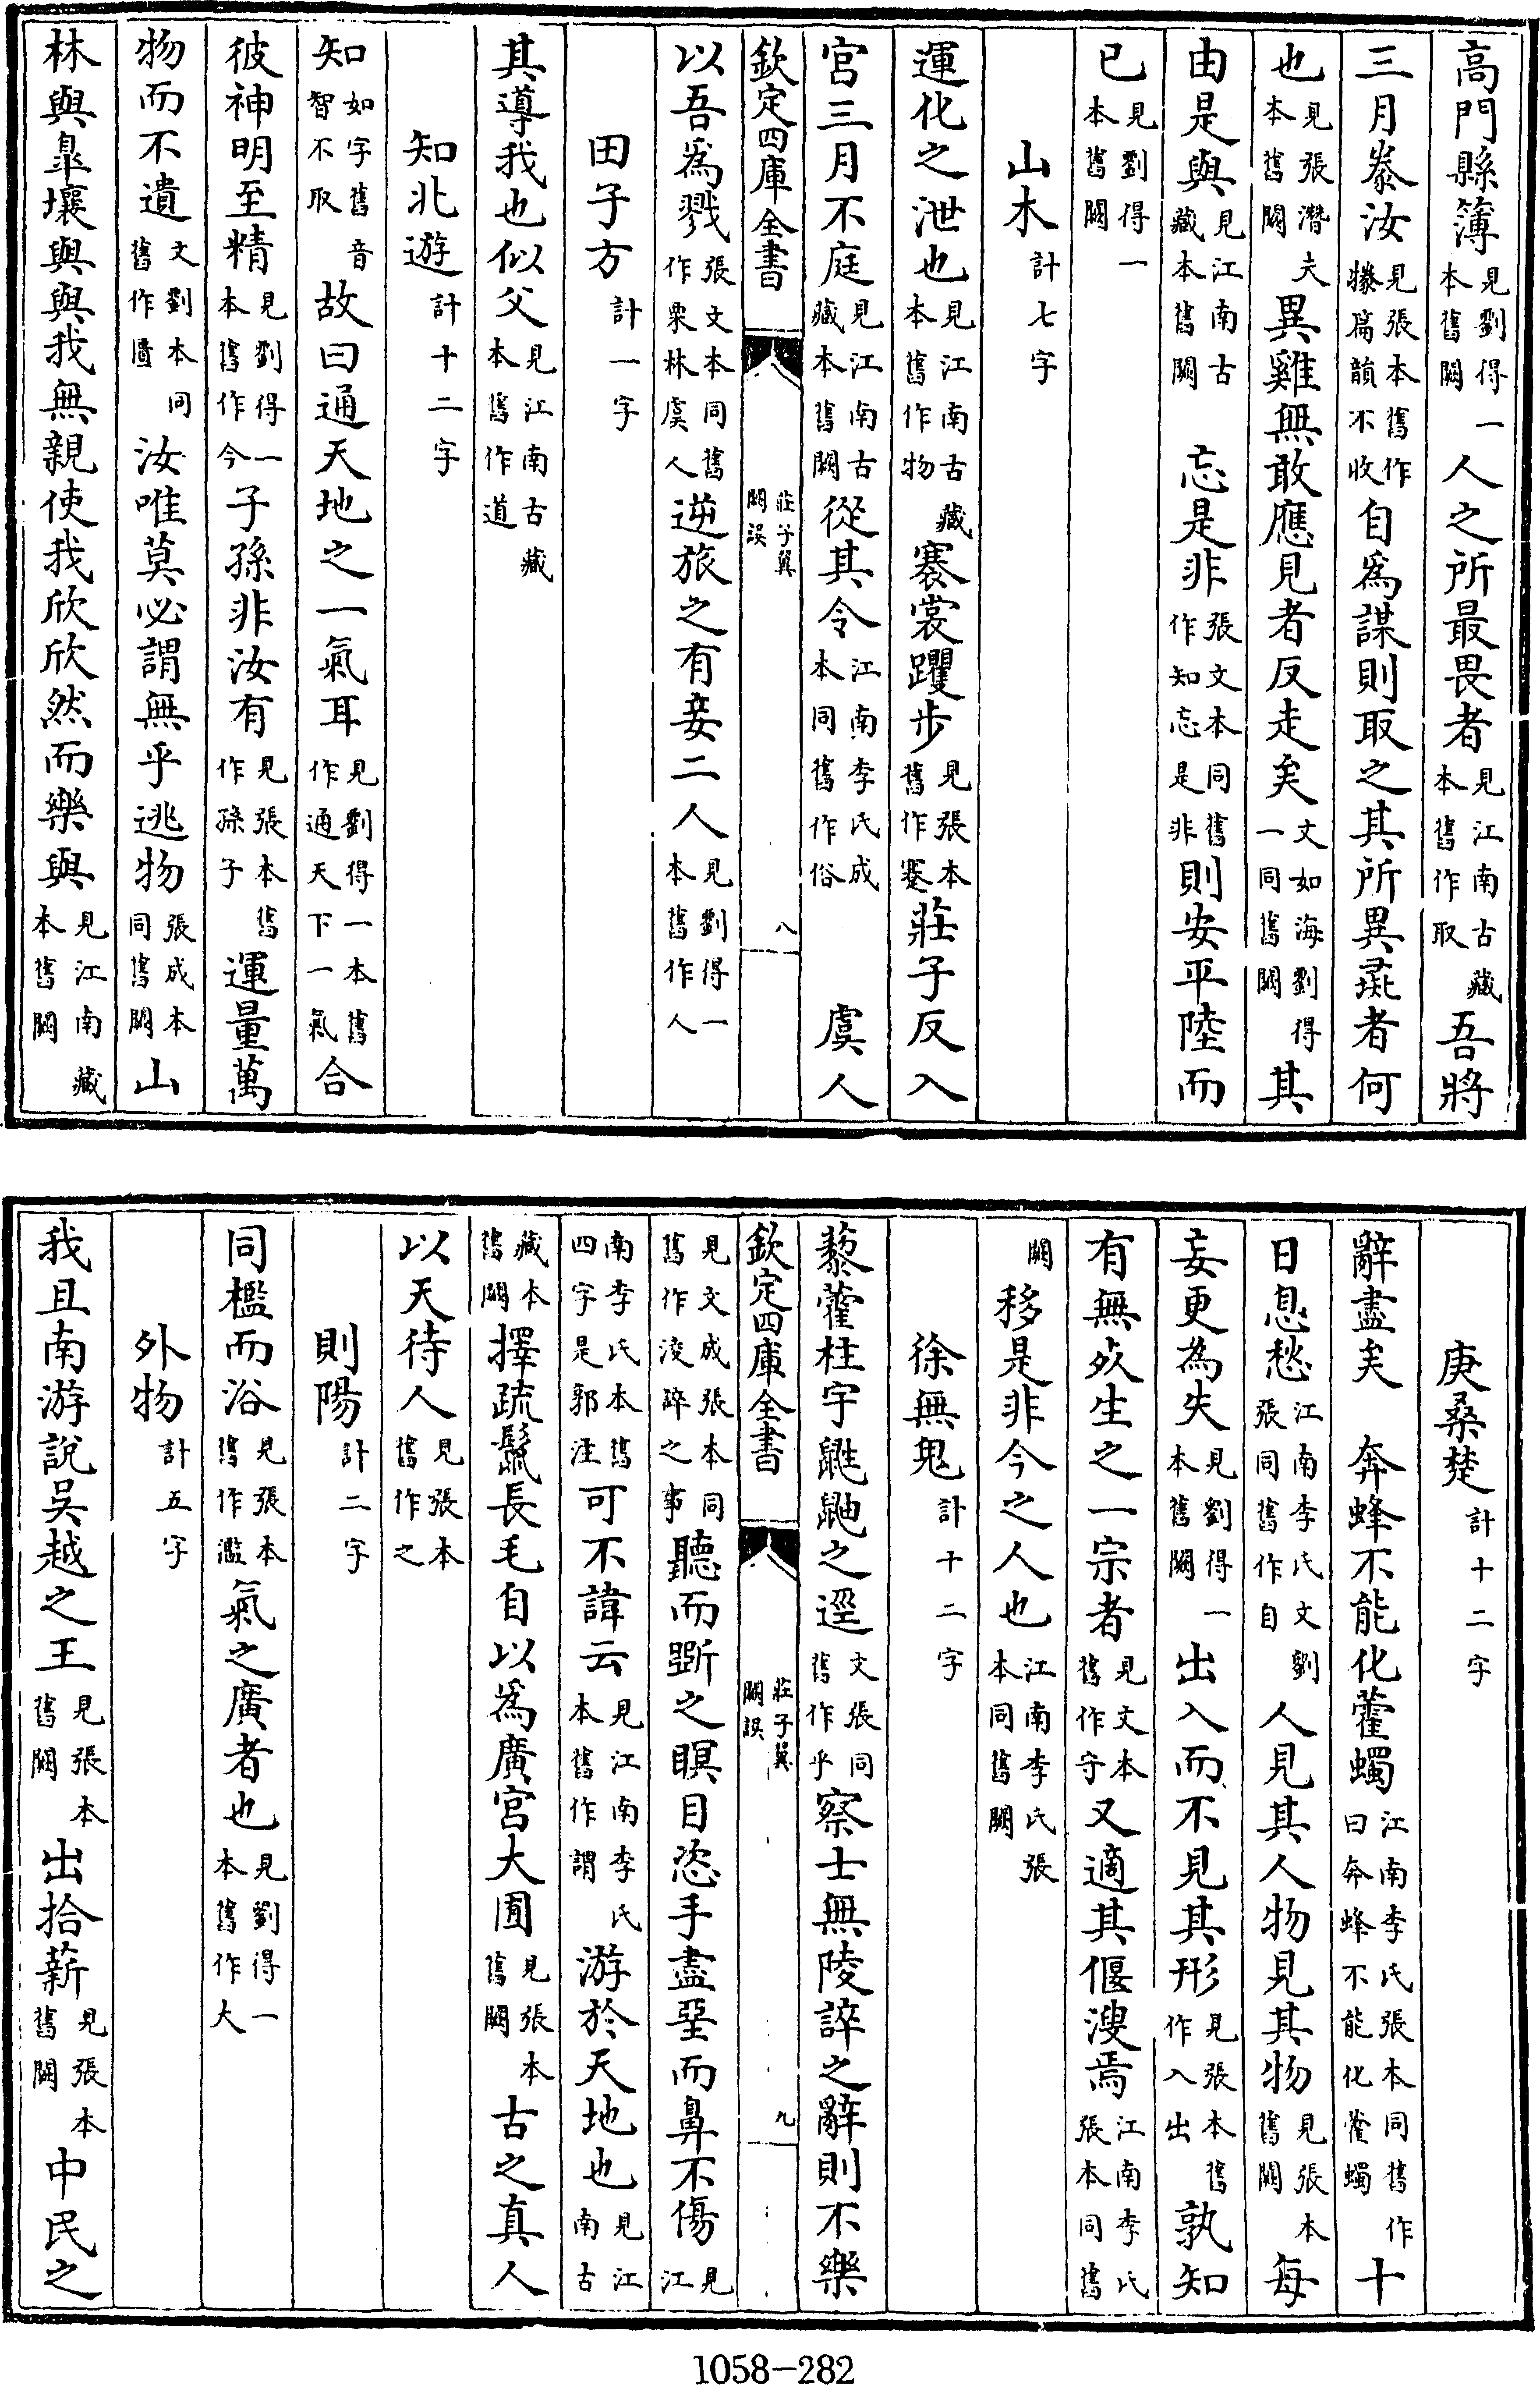 高門縣簿見劉得一本舊闕人之所最畏者見江南古藏本舊作取吾將
三月豢汝見張本舊作㹖篇韻不收自爲謀則取之其所異彘者何
也見張潛夫本舊闕異雞無敢應見者反走矣文如海劉得一同舊闕其
由是與見江南古藏本舊闕忘是非張文本同舊作知忘是非則安平陸而
已見劉得一本舊闕
山木計七字
運化之泄也見江南古藏本舊作物褰裳躩步見張本舊作蹇莊子反入
宮三月不庭見江南古藏本舊闕從其令江南李氏成本同舊作俗虞人
欽定四庫全書 莊子翼闕誤 八
以吾爲戮張文本同舊作栗林虞人逆旅之有妾二人見劉得一本舊作人
田子方計一字
其導我也似父見江南古藏本舊作道
知北遊計十二字
知如字舊音智不取故曰通天地之一氣耳見劉得一本舊作通天下一氣合
彼神明至精見劉得一本舊作今子孫非汝有見張本舊作孫子運量萬
物而不遺文劉本同舊作匱汝唯莫必謂無乎逃物張成本同舊闕山
林與臯壤與與我無親使我欣欣然而樂與見江南藏本舊闕
庚桑楚計十二字
辭盡矣 奔蜂不能化藿蠋江南李氏張本同舊作曰奔蜂不能化藿蠋十
日息愁江南李氏文劉張同舊作自人見其人物見其物見張本舊闕每
妄更為失見劉得一本舊闕出入而不見其形見張本舊作入出孰知
有無死生之一宗者見文本舊作守又適其偃溲焉江南李氏張本同舊
闕移是非今之人也江南李氏張本同舊闕
徐無鬼計十二字
藜藿柱宇鼪鼬之逕文張同舊作乎察士無陵誶之辭則不樂
見文成張本同舊作淩誶之事聽而斲之瞑目恣手盡堊而鼻不傷見江
南李氏本舊四字是郭注可不諱云見江南李氏本舊作謂游於天地也見江南古
藏本舊闕擇疏鬣長毛自以爲廣宮大囿見張本舊闕古之真人
以天待人見張本舊作之
則陽計二字
同檻而浴見張本舊作濫氣之廣者也見劉得一本舊作大
外物計五字
我且南游說吳越之王見張本舊闕出拾薪見張本舊闕中民之
欽定四庫全書 莊子翼闕誤 九
1058-282